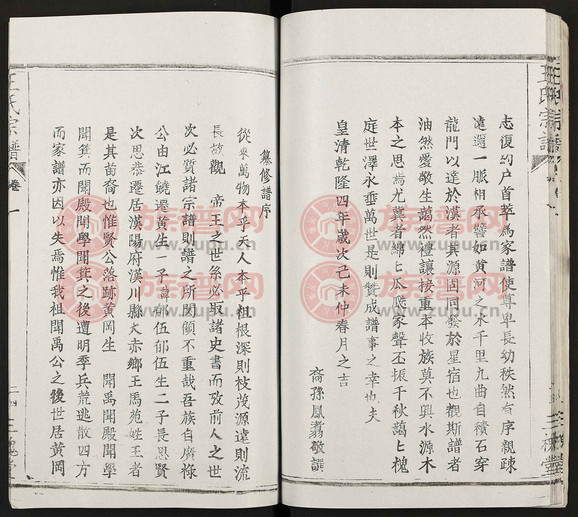 志復約户首萃為家譜使尊卑長幼秩然有序親疎
遠邇一脈相承譬如黄河之水千里九曲自積石穿
龍門以達於漢者其源固同發於星宿也觀斯譜者
油然愛敬生藹然禮讓接重本收族莫不興水源木
本之思焉尤冀者綿匕瓜瓞家聲丕振千秋藹匕槐
庭世澤永垂萬世是則贊成譜事之幸也夫
皇清乾隆四年歲次己未仲春月之吉
裔孫鳳翥敬譔
纂修譜序
從來萬物本乎天人本乎祖根深則枝茂源遠則流
長故觀 帝王之世系必取諸史書而攷前人之世
次必質諸宗譜則譜之所関顧不重哉吾族自廣祿
公由江饒遷黄生一子 郁伍郁伍生二子長思賢
次思恭遷居漢陽府漢川縣大赤鄉王馬苑姓王者
是其苗裔也惟賢公落跡黄岡生 聞禹聞殿聞學
聞箕而聞殿聞學聞箕之後遭明季兵荒逃散四方
而家譜亦因以失焉惟我祖聞禹公之後世居黄岡
王氏宗譜 卷一
王氏宗譜
三槐堂
三槐堂
族谱网
www.zupu.cn
族谱网
www.zupu.cn